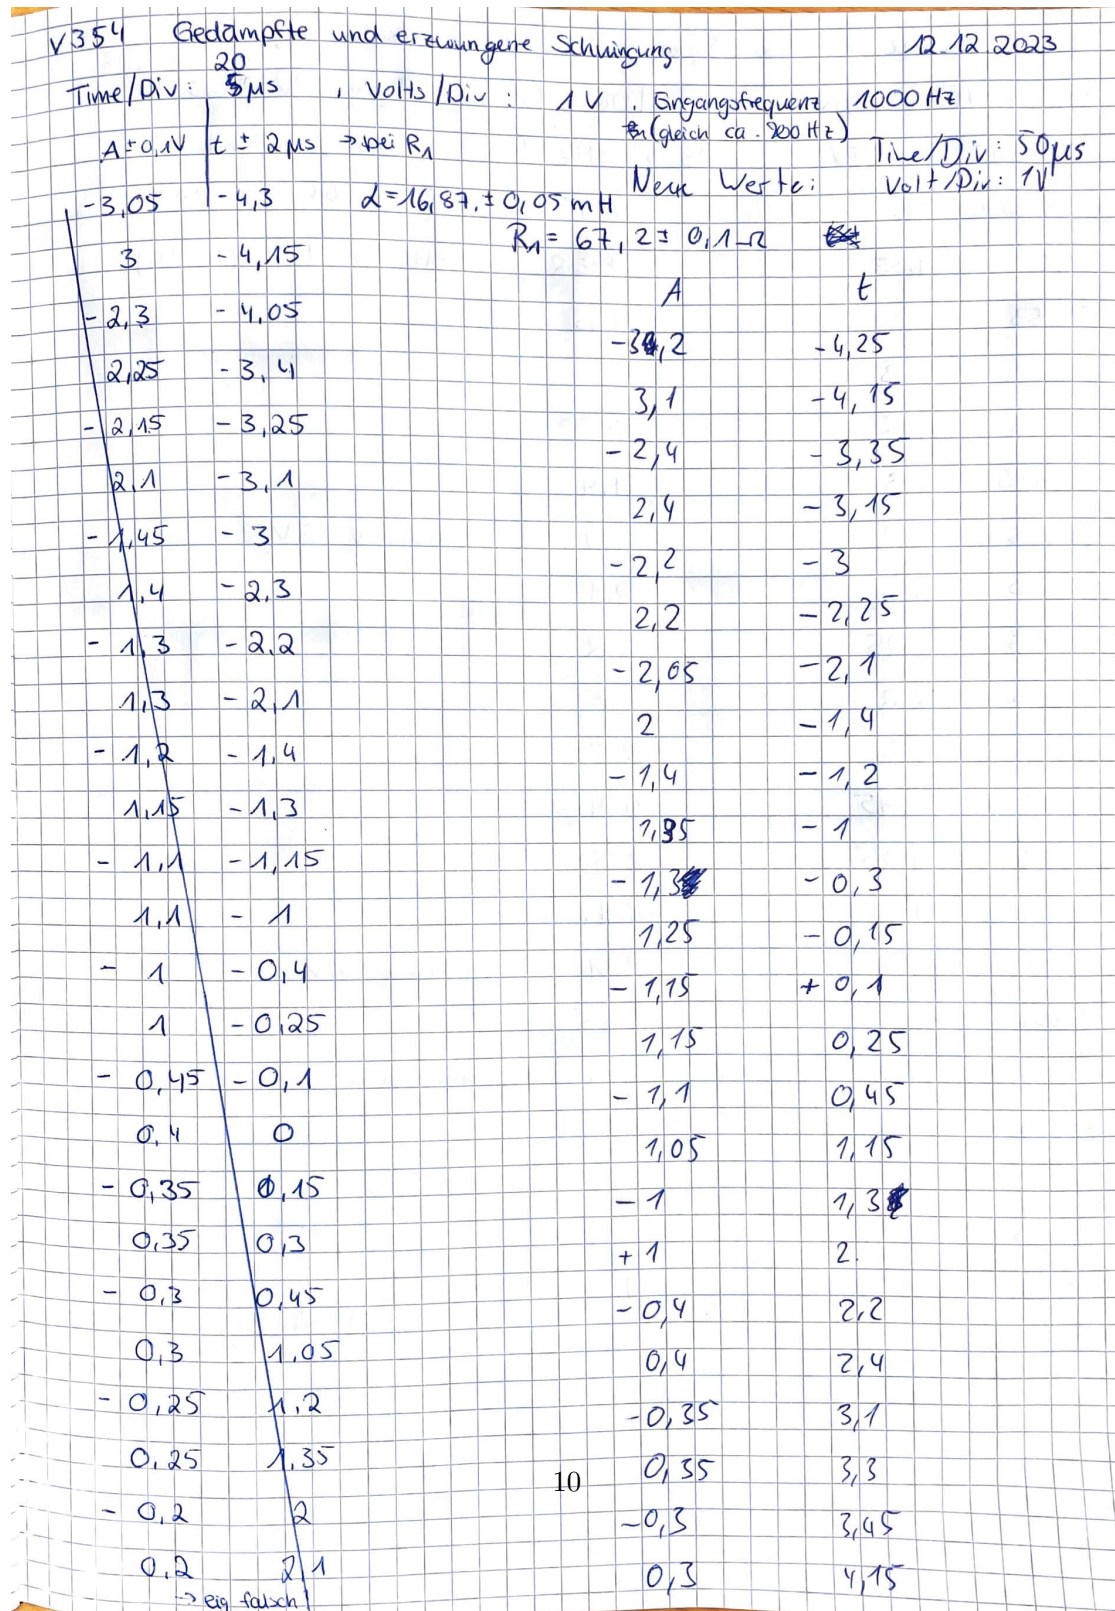 V354 Gedämpfte und erzwungene Schwingung 12.12.2023
20
Time/Div: 5µs , Volts/Div: 1V , Eingangsfrequenz 1000 Hz
(gleich ca. 900 Hz)
A ± 0,1V t ± 2µs → bei R₁
Time/Div: 50µs
Neue Werte: Volt/Div: 1V
-3,05 -4,3 L = 16,87 ± 0,05 mH
R₁ = 67,2 ± 0,1 Ω
3 -4,15
-2,3 -4,05
2,25 -3,4
-2,15 -3,25
2,1 -3,1
-1,45 -3
1,4 -2,3
-1,3 -2,2
1,3 -2,1
-1,2 -1,4
1,15 -1,3
-1,1 -1,15
1,1 -1
-1 -0,4
1 -0,25
-0,45 -0,1
0,4 0
-0,35 0,15
0,35 0,3
-0,3 0,45
0,3 1,05
-0,25 1,2
0,25 1,35
-0,2 2
0,2 2,1
→ eig falsch!
A t
-3,2 -4,25
3,1 -4,15
-2,4 -3,35
2,4 -3,15
-2,2 -3
2,2 -2,25
-2,05 -2,1
2 -1,4
-1,4 -1,2
1,35 -1
-1,3 -0,3
1,25 -0,15
-1,15 +0,1
1,15 0,25
-1,1 0,45
1,05 1,15
-1 1,3
+1 2
-0,4 2,2
0,4 2,4
-0,35 3,1
0,35 3,3
-0,3 3,45
0,3 4,15
10